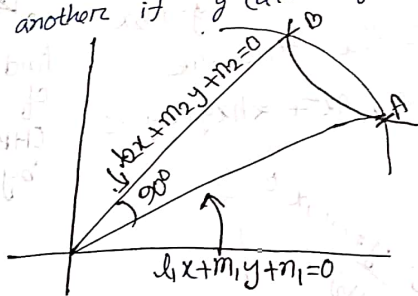 another if
B
l₂x+m₂y+n₂=0
A
90°
l₁x+m₁y+n₁=0